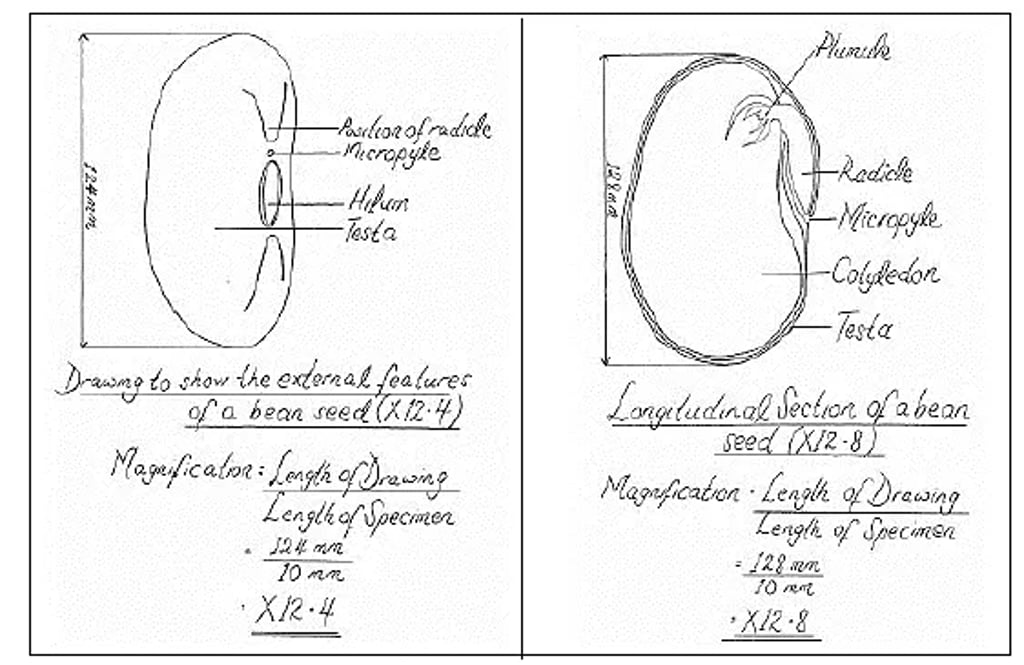 124mm
Position of radicle
Micropyle
Hilum
Testa
Drawing to show the external features
of a bean seed (X12.4)
Magnification = Length of Drawing
Length of Specimen
= 124 mm
10 mm
= X12.4
Plumule
128mm
Radicle
Micropyle
Cotyledon
Testa
Longitudinal Section of a bean
seed (X12.8)
Magnification = Length of Drawing
Length of Specimen
= 128 mm
10 mm
= X12.8